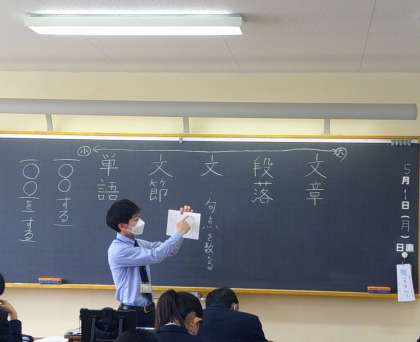 5月1日(月)日直
大
文章
段落
文
・句点を数える
文節
単語
小
〇〇する
〇〇をする